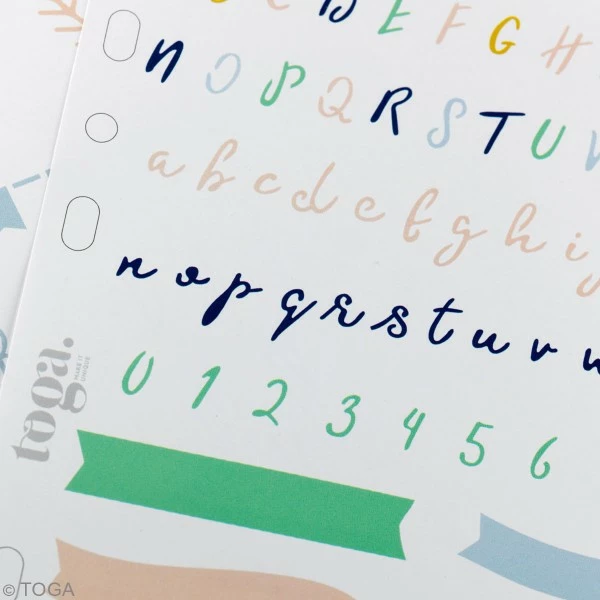 D E F G H
N O P Q R S T U V
a b c d e f g h i
n o p q r s t u v
0 1 2 3 4 5 6
toga.
MAKE IT
UNIQUE
© TOGA